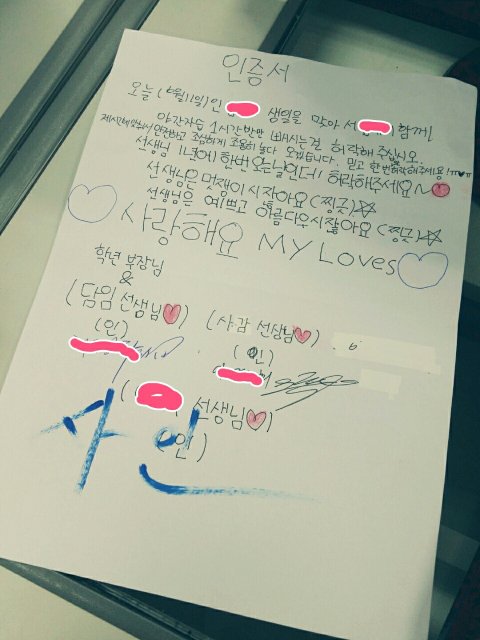 인증서
오늘 (4월11일)인 생일을 맞아 서 함께
야간자습 1시간반만 빠지는걸 허락해 주십시오.
제시간에 맞춰서 안전하고 조용히 놀다 오겠습니다. 믿고 한번 허락해주세요!ㅠㅠ
선생님 1년에 한번 오는날인데!! 허락해주세요~♥
선생님은 멋쟁이시잖아요 (찡긋)☆
선생님은 예쁘고 아름다우시잖아요 (찡긋)☆
♡사랑해요 MY LOVES♡
학년 부장님
&
(담임 선생님♥) (사감 선생님♥)
(인) (인)
( 선생님♥)
(인)
사인